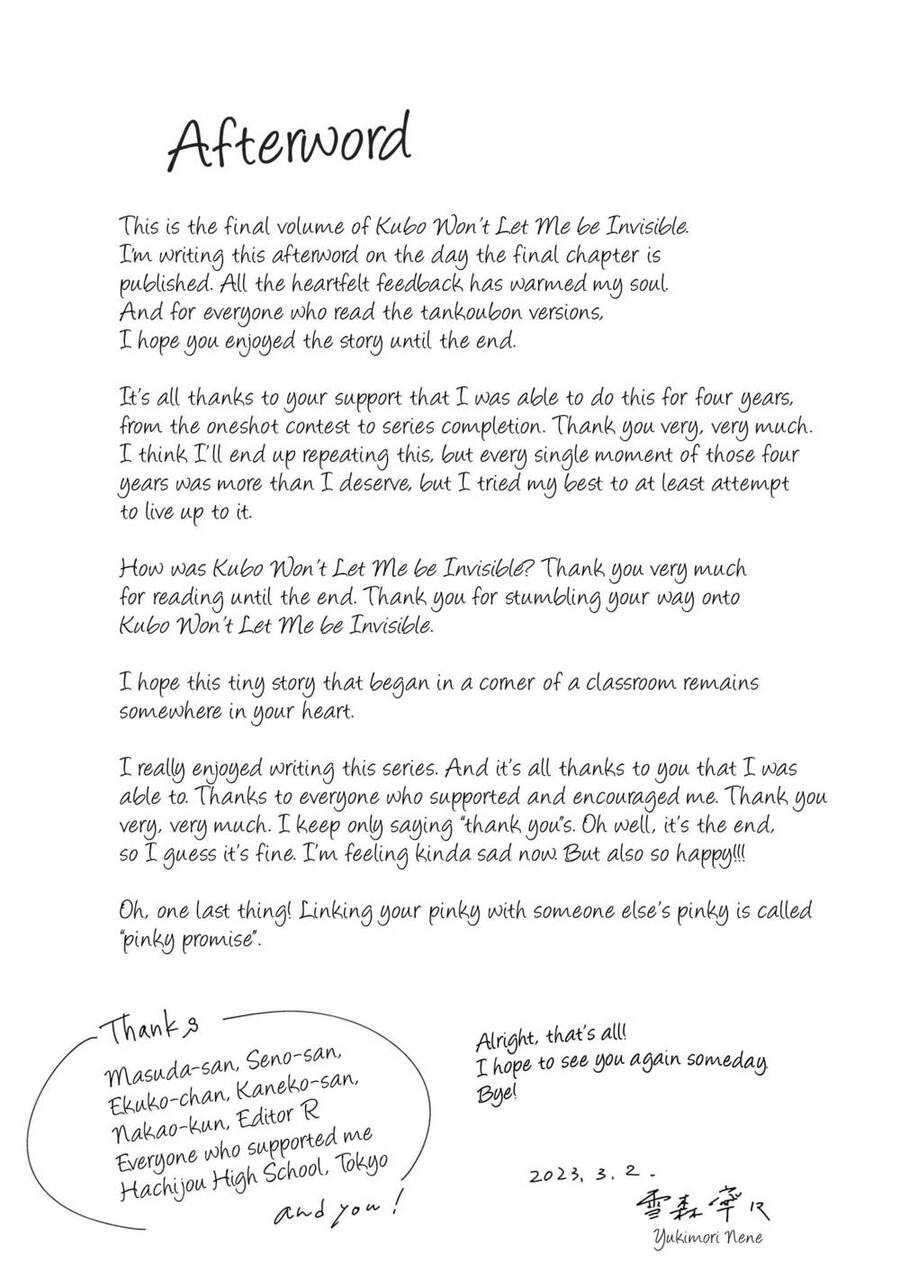 Afterword
This is the final volume of Kubo Won't Let Me be Invisible.
I'm writing this afterword on the day the final chapter is
published. All the heartfelt feedback has warmed my soul.
And for everyone who read the tankoubon versions,
I hope you enjoyed the story until the end.
It's all thanks to your support that I was able to do this for four years,
from the oneshot contest to series completion. Thank you very, very much.
I think I'll end up repeating this, but every single moment of those four
years was more than I deserve, but I tried my best to at least attempt
to live up to it.
How was Kubo Won't Let Me be Invisible? Thank you very much
for reading until the end. Thank you for stumbling your way onto
Kubo Won't Let Me be Invisible.
I hope this tiny story that began in a corner of a classroom remains
somewhere in your heart.
I really enjoyed writing this series. And it's all thanks to you that I was
able to. Thanks to everyone who supported and encouraged me. Thank you
very, very much. I keep only saying "thank you"s. Oh well, it's the end,
so I guess it's fine. I'm feeling kinda sad now. But also so happy!!!
Oh, one last thing! Linking your pinky with someone else's pinky is called
"pinky promise".
Thanks
Masuda-san, Seno-san,
Ekuko-chan, Kaneko-san,
Nakao-kun, Editor R
Everyone who supported me
Hachijou High School, Tokyo
and you!
Alright, that's all!
I hope to see you again someday.
Bye!
2023.3.2.
雪森寧々
Yukimori Nene